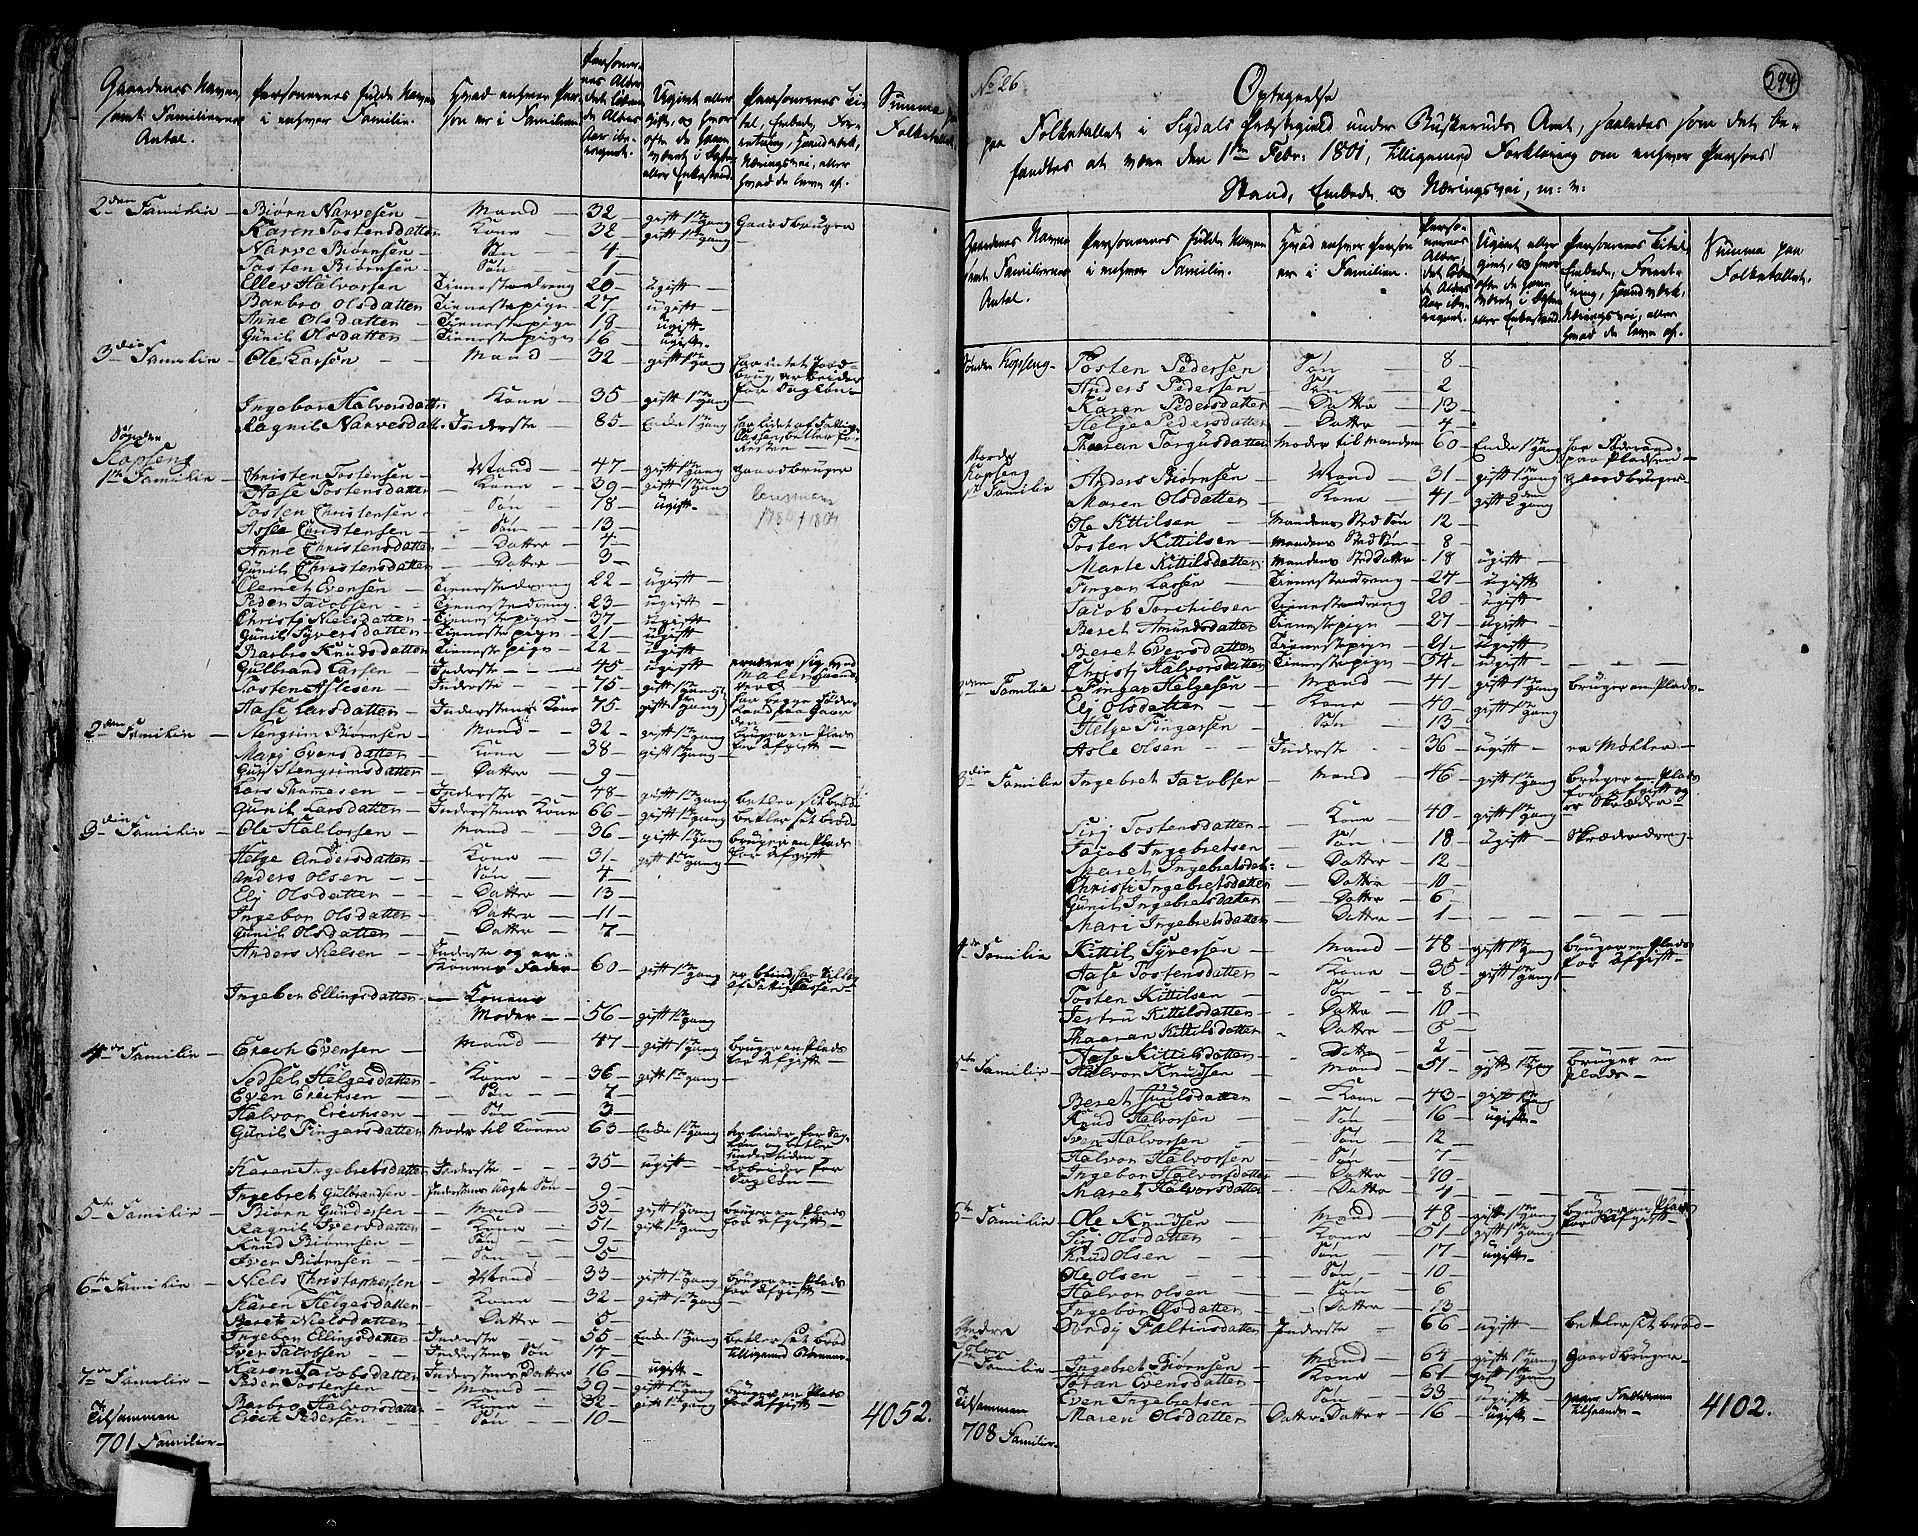 Gaardenes Navne samt Familiernes Antal.
Personernes fulde Navne i enhver Familie.
Hvad enhver Person er i Familien
Personernes Alder det løbende Alders Aar iberegnet.
Ugivt eller givt, og hvor ofte de have været i Egte- eller Enkestand.
Personernes Titel, Embede, Forretning, Haandværk, Næringsvei, eller hvad de leve af.
Summa paa Folketallet.
2den Familie – Biørn Narvesen – Mand – 32 gift 1ste gang Gaardbruger
Karen Tostensdatter Kone – 32 gift 1ste gang
Narve Biørnsen – Søn – 4
Tosten Biørnsen – Søn – 1
Ellev Halvorsen Tienestedreng 20 ugift
Barbro Olsdatter Tienestepige 27 ugift
Anne Olsdatter Tienestepige 18 ugift
Gunil Olsdatter Tienestepige 16 ugift
3die Familie Ole Larsøn Mand 32 gift 1ste gang har intet Jordbrug, arbeider for Dagløn
Ingebor Halvorsdatter Kone 35 gift 1ste gang
Ragnil Narvesdatt. Inderste 85 Enke 1ste gang
Søndre Kopseng
1ste Familie Christen Tostensen Mand 47 gift 1ste gang gaardbruger
Aase Tostensdatter Kone 39 gift 1ste gang
Tosten Christensen Søn 18 ugift
Asle Christensen Søn 13
Anne Christensdatter Datter 4
Gunil Christensdatter Datter 3
Clemet Evensen Tienestedreng 22 ugift
Peder Jacobsen Tienestedreng 23 ugift
Christj Nielsdatter Tienestepige 37 ugift
Gunil Syversdatter Tienestepige 21 ugift
Barbro Knudsdatter Tienestepige 22 ugift
Gulbrand Larsen Inderste 45 ugift ernærer sig med
Tosten Aslesen Inderste 75 gift 1ste gang
Aase Larsdatter Inderstens Kone 75 gift 1ste gang
2den Familie Stengrim Biørnsen Mand 32 gift 1ste gang bruger en Plads for Afgift
Marj Evensdatter Kone 38 gift 1ste gang
Guri Stengrimsdatter Datter 9
Lars Thomesen Inderste 48 gift 1ste gang betler sit brød
Gunil Larsdatter Inderstens Kone 66 gift 1ste gang betler sit brød
3die Familie Ole Hallorsen Mand 36 gift 1ste gang bruger en Plads for Afgift
Helge Andersdatter Kone 31 gift 1ste gang
Anders Olsen Søn 4
Elj Olsdatter Datter 13
Ingebor Olsdatter Datter 11
Gunil Olsdatter Datter 7
Anders Nielsen Inderste og er Konens Fader 60 gift 1ste gang
Ingebor Ellingsdatter Konens Moder 56 gift 1ste gang
4de Familie Erich Evensen Mand 47 gift 1ste gang bruger en Plads for Afgift
Sedsel Helgesdatter Kone 36 gift 1ste gang
Even Erichsen Søn 7
Halvor Erichsen Søn 3
Gunil Fingarsdatter Moder til Konen 63 Enke 1ste gang
Karen Ingebretsdatter Inderste 35 ugift arbeider for Dagløn
Ingebret Gulbrandsen Inderstens Uægte Søn 9
5te Familie Biørn Gundersen Mand 33 gift 1ste gang bruger en Plads for Afgift
Ragnil Iversdatter Kone 51 gift 1ste gang
Knud Biørnsen Søn 9
Iver Biørnsen Søn 5
6te Familie Niels Christophersen Mand 33 gift 1ste gang bruger en Plads for Afgift
Karen Helgesdatter Kone 32 gift 1ste gang
Beret Nielsdatter Datter 5
Ingebor Ellingsdatter Inderste 55 Enke 1ste gang betler sit brød
Iver Jacobsen Inderstens Søn 17
Karen Jacobsdatter Inderstens Datter 16 ugift
7de Familie Peder Tostensen Mand 39 gift 1ste gang bruger en Plads for Afgift
Barbro Halvorsdatter Kone 32 gift 1ste gang
Erich Pedersen Søn 10
Tilsammen
701 Familier
4052.
No 26
294
Optegnelse
paa Folketallet i Sigdals Præstegield under Buskeruds Amt, saaledes som det be-
fandtes at være den 1ste Febr: 1801, tilligemed Forklaring om enhver Persons
Stand, Embede og Næringsvei, m: v:
Gaardenes Navne samt Familiernes Antal.
Personernes fulde Navne i enhver Familie.
Hvad enhver Person er i Familien.
Personernes Alder det løbende Alders Aar iberegnet.
Ugivt eller givt, og hvor ofte de have været i Egte- eller Enkestand.
Personernes Titel, Embede, Forretning, Haandværk, Næringsvei, eller hvad de leve af.
Summa paa Folketallet.
Sønder Kopseng Tosten Pedersen Søn 8
Anders Pedersen Søn 2
Karen Pedersdatter Datter 13
Helge Pedersdatter Datter 4
Thoran Torgusdatter Moder til Manden 60 Enke 1ste gang
Nordre Kopseng
1ste Familie Anders Biørnsen Mand 31 gift 1ste gang gaardbruger
Maren Olsdatter Kone 41 gift 2den gang
Ole Kittilsen Mandens Sted Søn 12
Tosten Kittilsen Mandens Sted Søn 8
Marte Kittilsdatter Mandens Sted Datter 18 ugift
Fingar Larsen Tienestedreng 24 ugift
Jacob Torchilsen Tienestedreng 20 ugift
Beret Amundsdatter Tienestepige 27 ugift
Beret Evensdatter Tienestepige 21 ugift
Christj Halvorsdatter Tienestepige 54 ugift
2den Familie Fingar Helgesen Mand 41 gift 1ste gang bruger en Plads
Elj Olsdatter Kone 40 gift 1ste gang
Helge Fingarsen Søn 13
Asle Olsen Inderste 36 ugift er Møller
3die Familie Ingebret Jacobsen Mand 46 gift 1ste gang bruger en Plads for Afgift og er Skræder
Sirj Tostensdatter Kone 40 gift 1ste gang
Jacob Ingebretsen Søn 18 ugift Skræderdreng
Maret Ingebretsdat: Datter 12
Christi Ingebretsdatter Datter 10
Gunil Ingebretsdatter Datter 6
Mari Ingebretsdatter Datter 1
4de Familie Kittil Syversen Mand 48 gift 1ste gang bruger en Plads for Afgift
Aase Tostensdatter Kone 35 gift 1ste gang
Tosten Kittilsen Søn 8
Jertru Kittilsdatter Datter 10
Thaaran Kittilsdatter Datter 5
Aase Kittilsdatter Datter 2
5te Familie Halvor Knudsen Mand 51 gift 1ste gang bruger en Plads
Beret Juulsdatter Kone 43 gift 1ste gang
Knud Halvorsen Søn 16 ugift
Iver Halvorsen Søn 12
Halvor Halvorsen Søn 7
Ingebor Halvorsdatter Datter 10
Maret Halvorsdatter Datter 4
6te Familie Ole Knudsen Mand 48 gift 1ste gang bruger en Plads for Afgift
Sirj Olsdatter Kone 51 gift 1ste gang
Knud Olsen Søn 17 ugift
Ole Olsen Søn 10
Halvor Olsen Søn 6
Ingebor Olsdatter Datter 13
Dordj Faltinsdatter Inderste 66 ugift betler sit brød
1ste Familie Ingebret Biørnsen Mand 64 gift 1ste gang gaardbruger
Joran Evensdatter Kone 61 gift 1ste gang
Even Ingebretsen Søn 33 ugift
Maren Olsdatter Datter Datter 16 ugift
Tilsammen
708 Familier
4102.